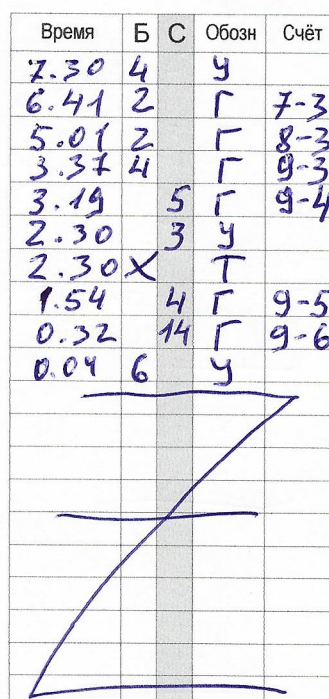 Время Б С Обозн Счёт
7.30 4 У
6.41 2 Г 7-3
5.01 2 Г 8-3
3.37 4 Г 9-3
3.19 5 Г 9-4
2.30 3 У
2.30 X Т
1.54 4 Г 9-5
0.32 14 Г 9-6
0.04 6 У